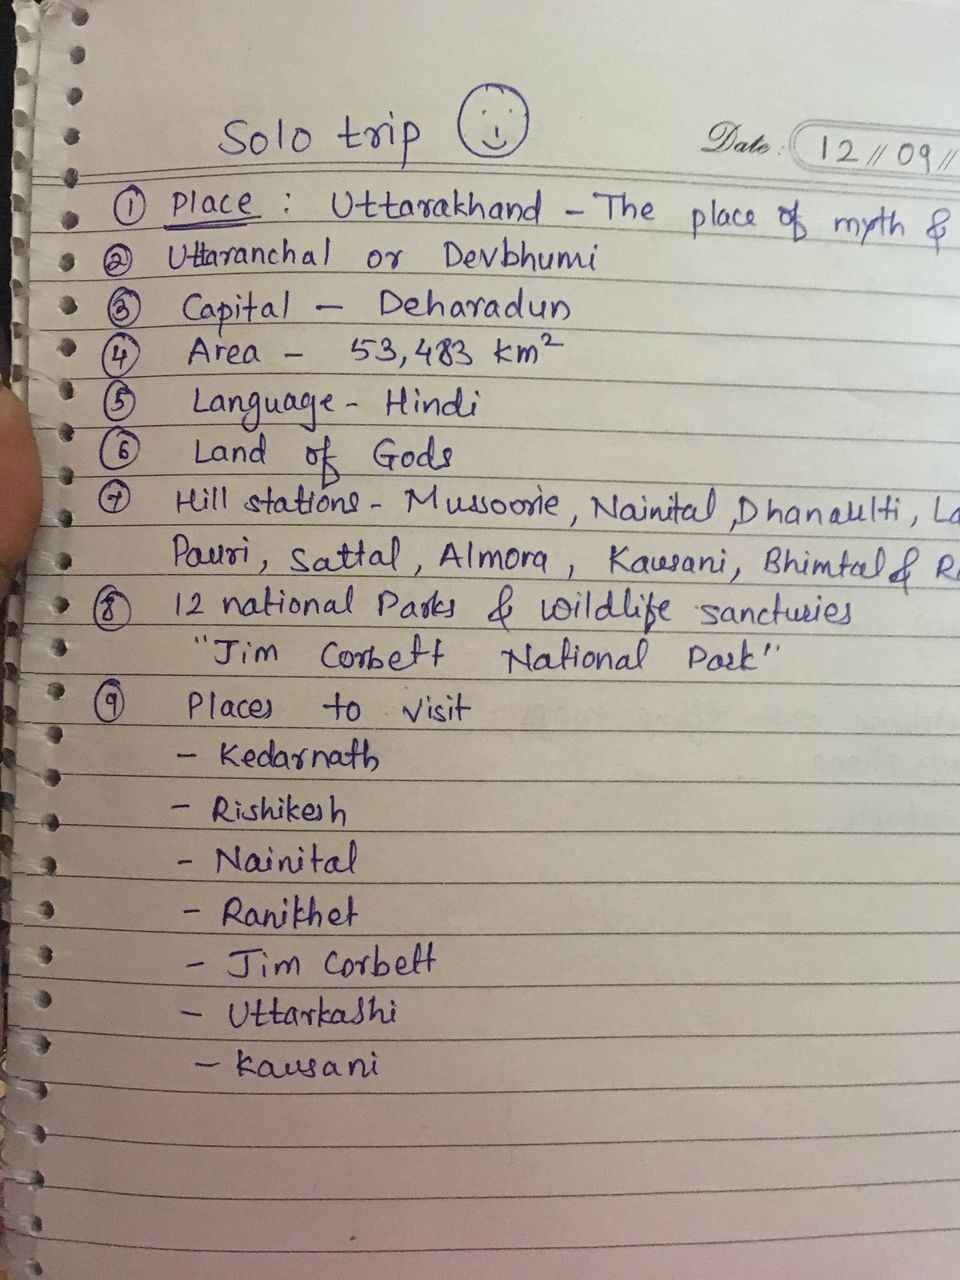 Solo trip
Date: 12 // 09 //
① Place : Uttarakhand - The place of myth &
② Uttaranchal or Devbhumi
③ Capital - Deharadun
④ Area - 53,483 km²
⑤ Language - Hindi
⑥ Land of Gods
⑦ Hill stations - Mussoorie, Nainital, Dhanaulti,
Pauri, Sattal, Almora, Kausani, Bhimtal &
⑧ 12 national Parks & wildlife sancturies
"Jim Corbett National Park"
⑨ Places to visit
- Kedarnath
- Rishikesh
- Nainital
- Ranikhet
- Jim Corbett
- Uttarkashi
- Kausani